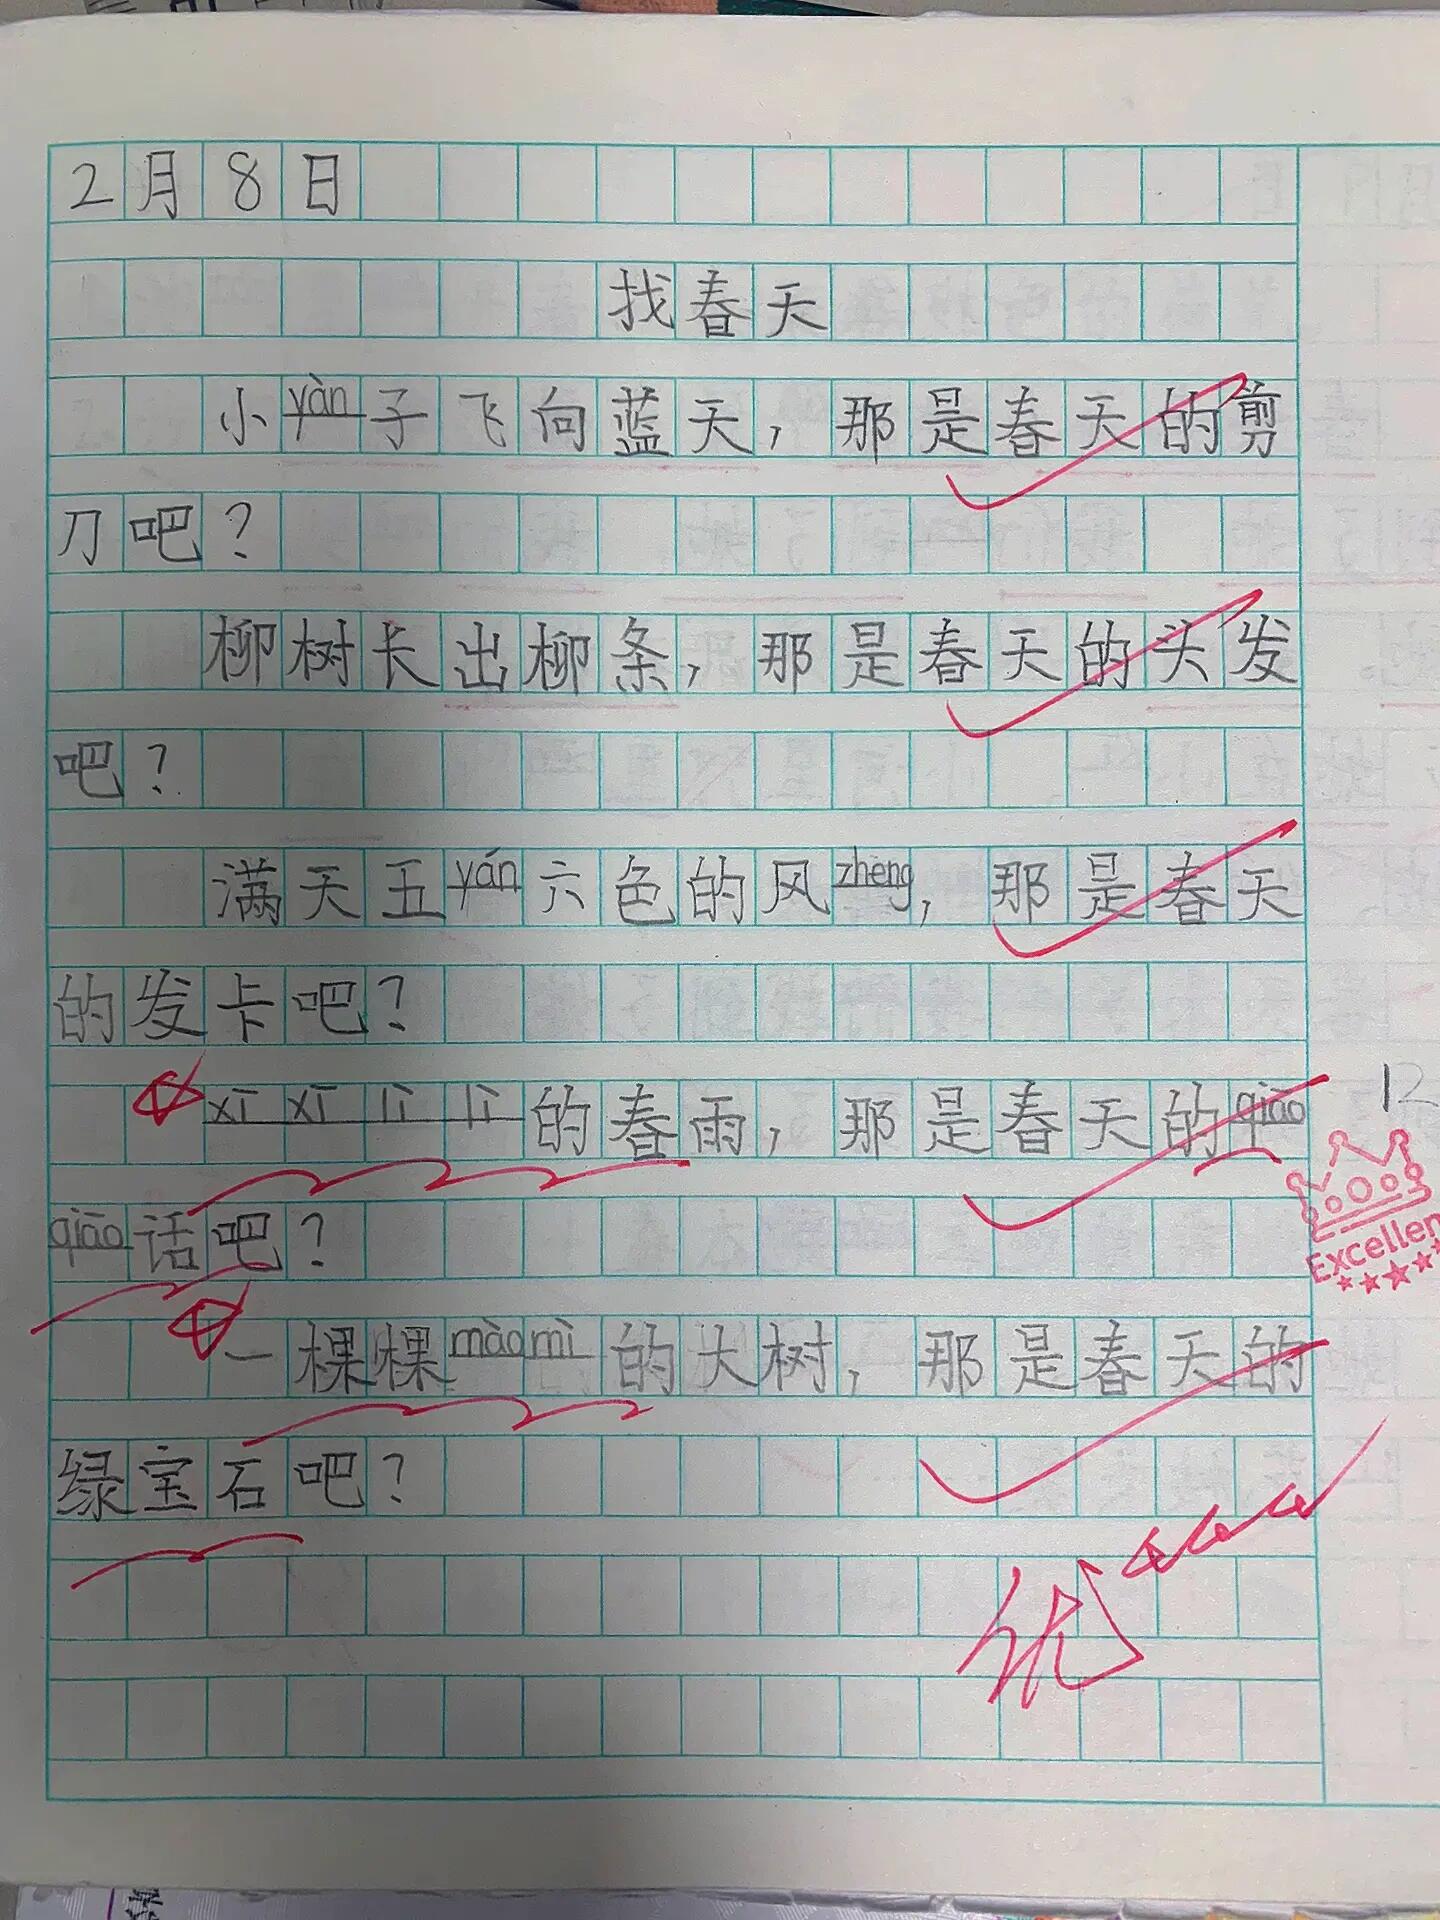 2月8日
找春天
小yàn子飞向蓝天，那是春天的剪
刀吧？
柳树长出柳条，那是春天的头发
吧？
满天五yán六色的风zheng，那是春天
的发卡吧？
xī xī lì lì的春雨，那是春天的qiāo
12
qiāo话吧？
Excellen
一棵棵mào mì的大树，那是春天的
绿宝石吧？
优